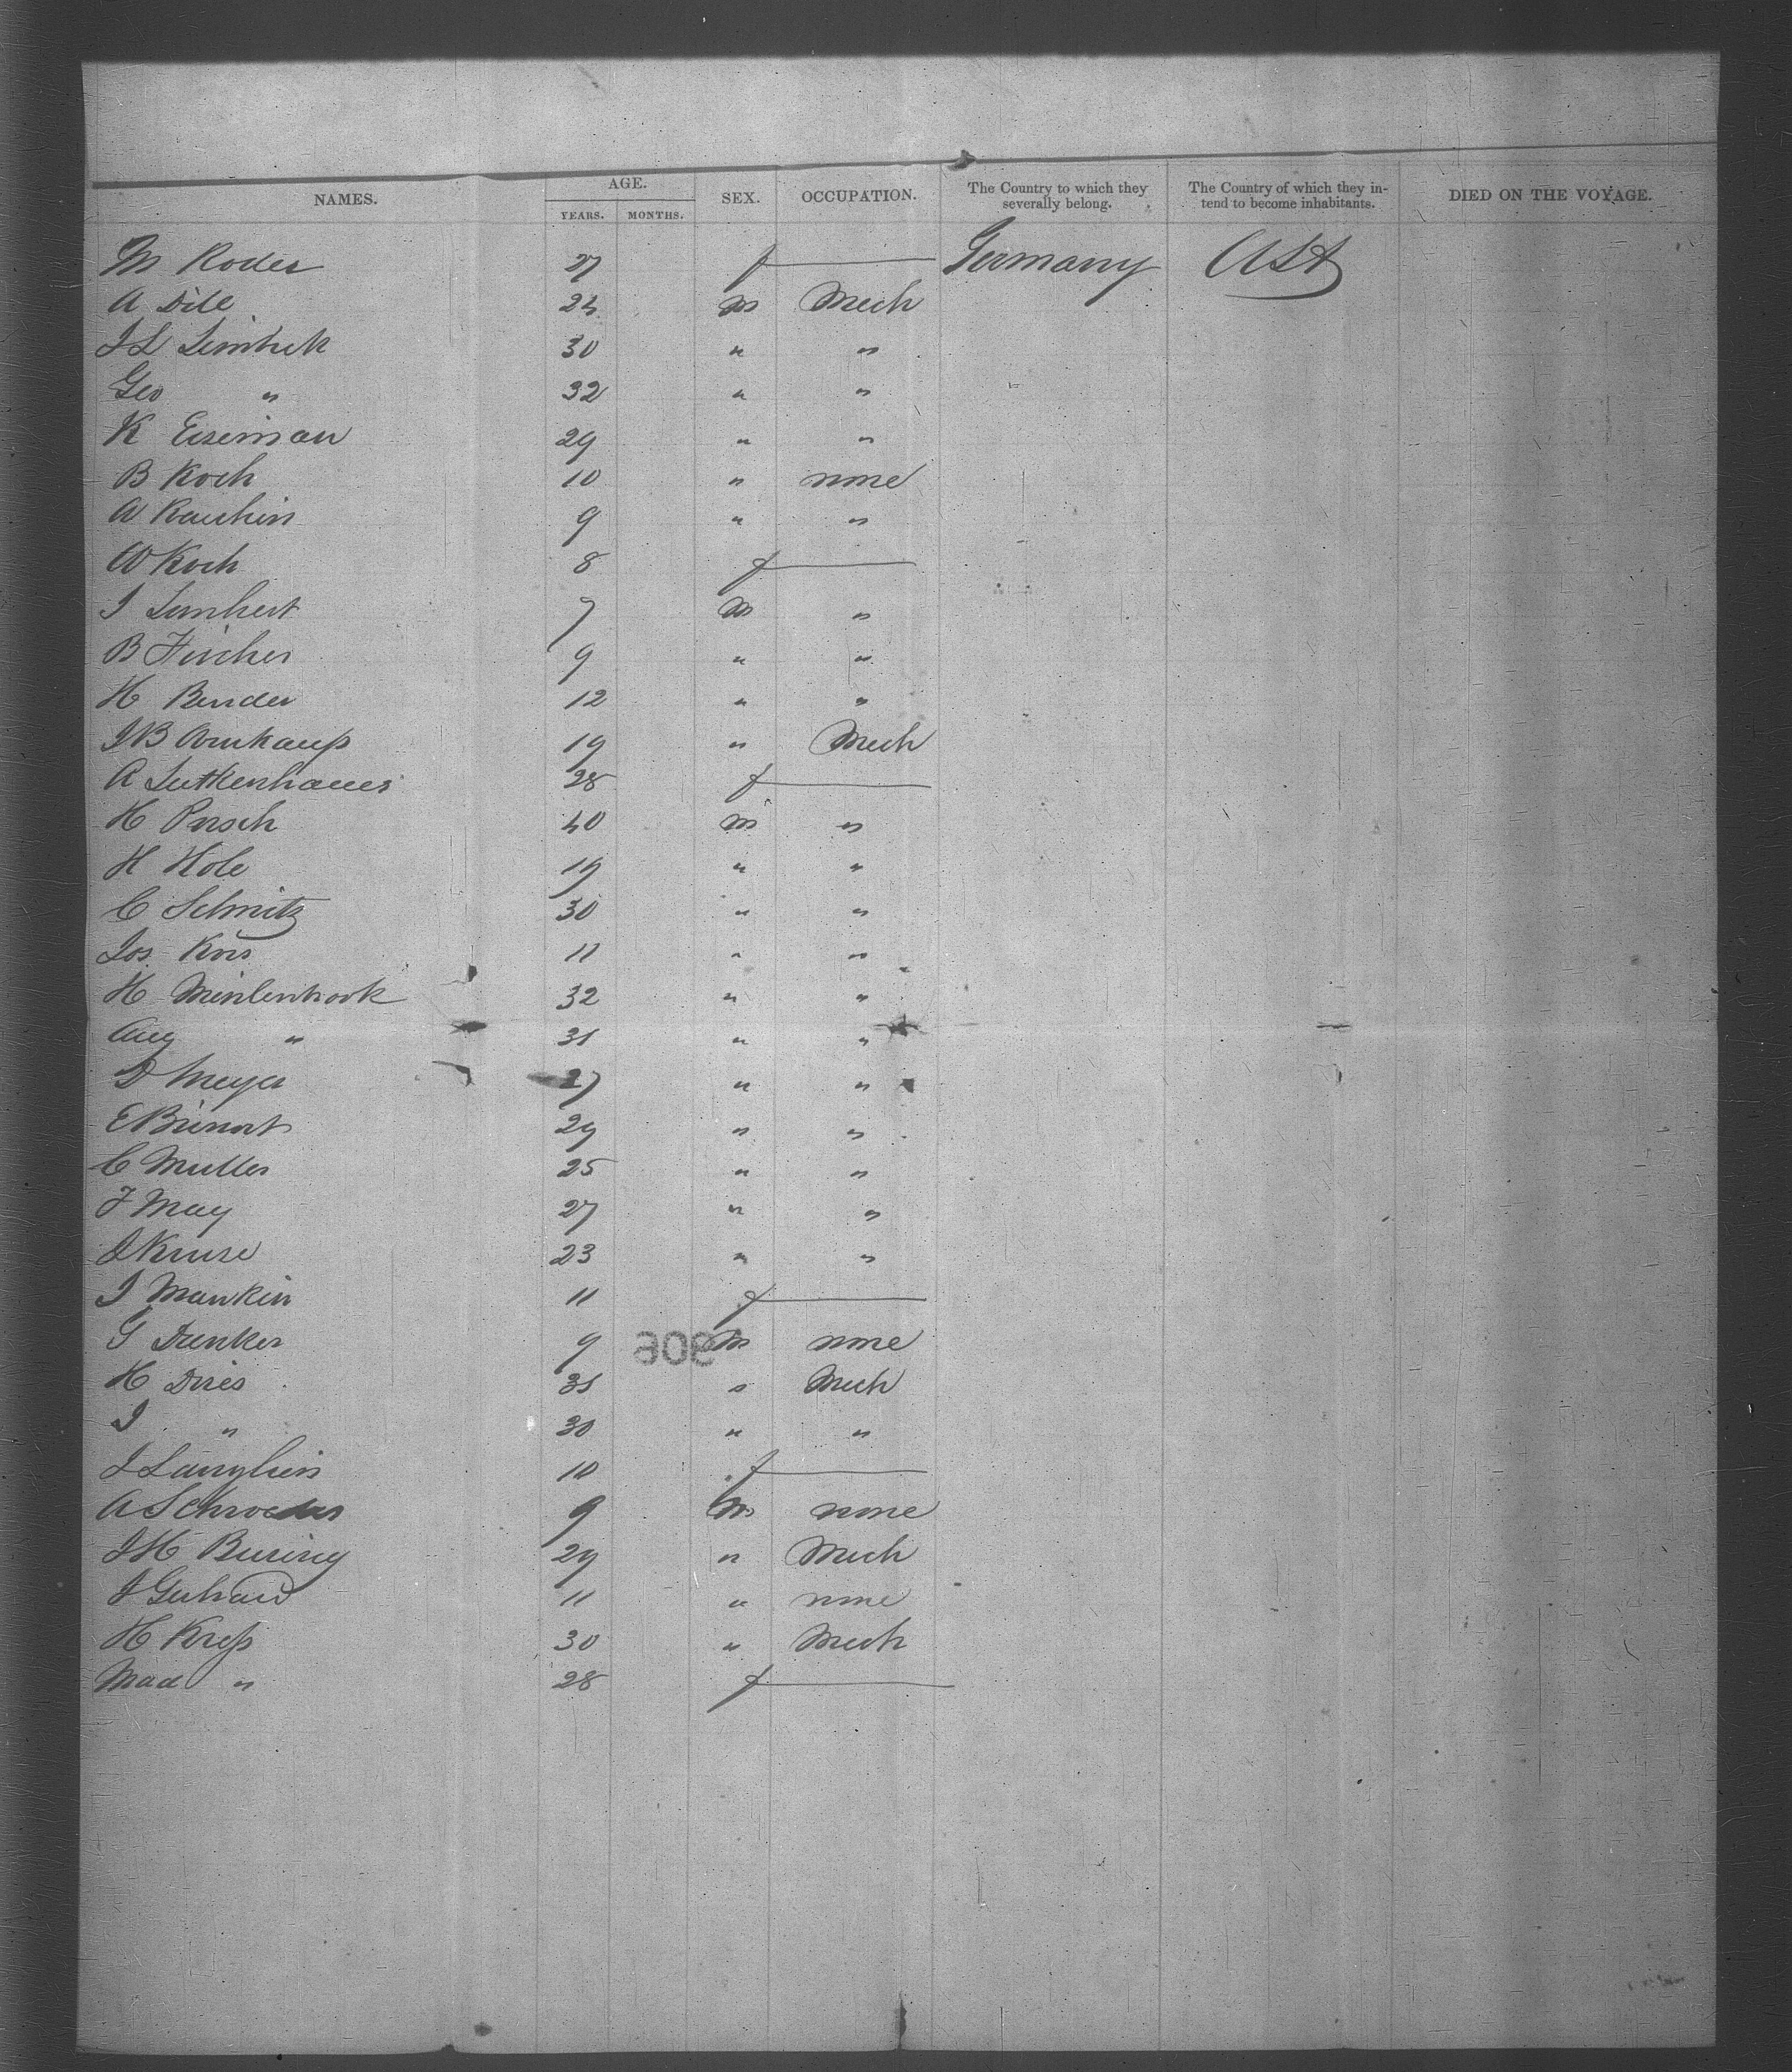 NAMES. AGE. YEARS. MONTHS. SEX. OCCUPATION. The Country to which they severally belong. The Country of which they intend to become inhabitants. DIED ON THE VOYAGE.
M Roder 27 f Germany USA
A Dill 24 m Mech
J L 30 " "
Geo " 32 " "
K Eiseman 29 " "
B Koch 10 " none
A 9 " "
W Koch 8 f
J 7 m "
B Fischer 9 " "
H Bender 12 " "
J B 19 " Mech
A Lutkenhaues 28 f
H 40 m "
H Hole 19 " "
C Schmitz 30 " "
Jos 11 " "
H 32 " "
Aug " 31 " "
D Meyer 27 " "
E 29 " "
C Muller 25 " "
F May 27 " "
J Kruse 23 " "
J Mankin 11 f
G Dunker 9 m none
H Dries 31 " Mech
J " 30 " "
J 10 f
A Schroeder 9 m none
J H Buring 29 " Mech
J Gerhard 11 " none
H Kress 30 " Mech
Mad " 28 f